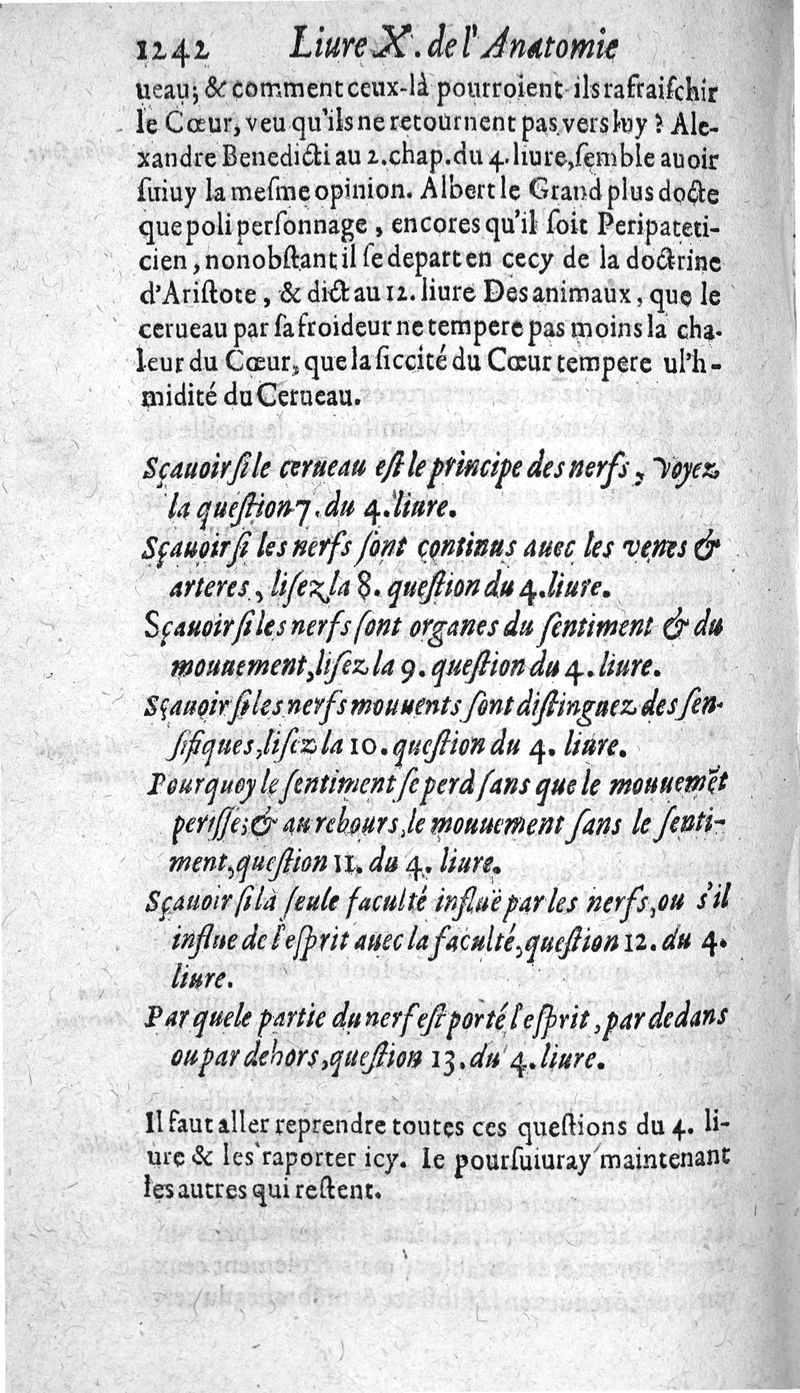 1242 Liure X. de l'Anatomie
ueau; & comment ceux-là pourroient ils rafraiſchir
le Cœur, veu qu'ils ne retournent pas vers luy ? Ale-
xandre Benedicti au 2. chap. du 4. liure, ſemble auoir
ſuiuy la meſme opinion. Albert le Grand plus docte
que poli perſonnage, encores qu'il ſoit Peripateti-
cien, nonobſtant il ſe depart en cecy de la doctrine
d'Ariſtote, & dict au 12. liure Des animaux, que le
cerueau par ſa froideur ne tempere pas moins la cha-
leur du Cœur, que la ſiccité du Cœur tempere ul'h-
midité du Cerueau.
Sçauoir ſi le cerueau eſt le principe des nerfs, Voyez
la queſtion 7. du 4. liure.
Sçauoir ſi les nerfs ſont continus auec les venes &
arteres, liſez la 8. queſtion du 4. liure.
Sçauoir ſi les nerfs ſont organes du ſentiment & du
mouuement, liſez la 9. queſtion du 4. liure.
Sçauoir ſi les nerfs mouuents ſont diſtinguez des ſen-
ſifiques, liſez la 10. queſtion du 4. liure.
Pourquoy le ſentiment ſe perd ſans que le mouuemẽt
periſſe; & au rebours, le mouuement ſans le ſenti-
ment, queſtion 11. du 4. liure.
Sçauoir ſi la ſeule faculté influë par les nerfs, ou s'il
influe de l'eſprit auec la faculté, queſtion 12. du 4.
liure.
Par quele partie du nerf eſt porté l'eſprit, par dedans
ou par dehors, queſtion 13. du 4. liure.
Il faut aller reprendre toutes ces queſtions du 4. li-
ure & les raporter icy. Ie pourſuiuray maintenant
les autres qui reſtent.